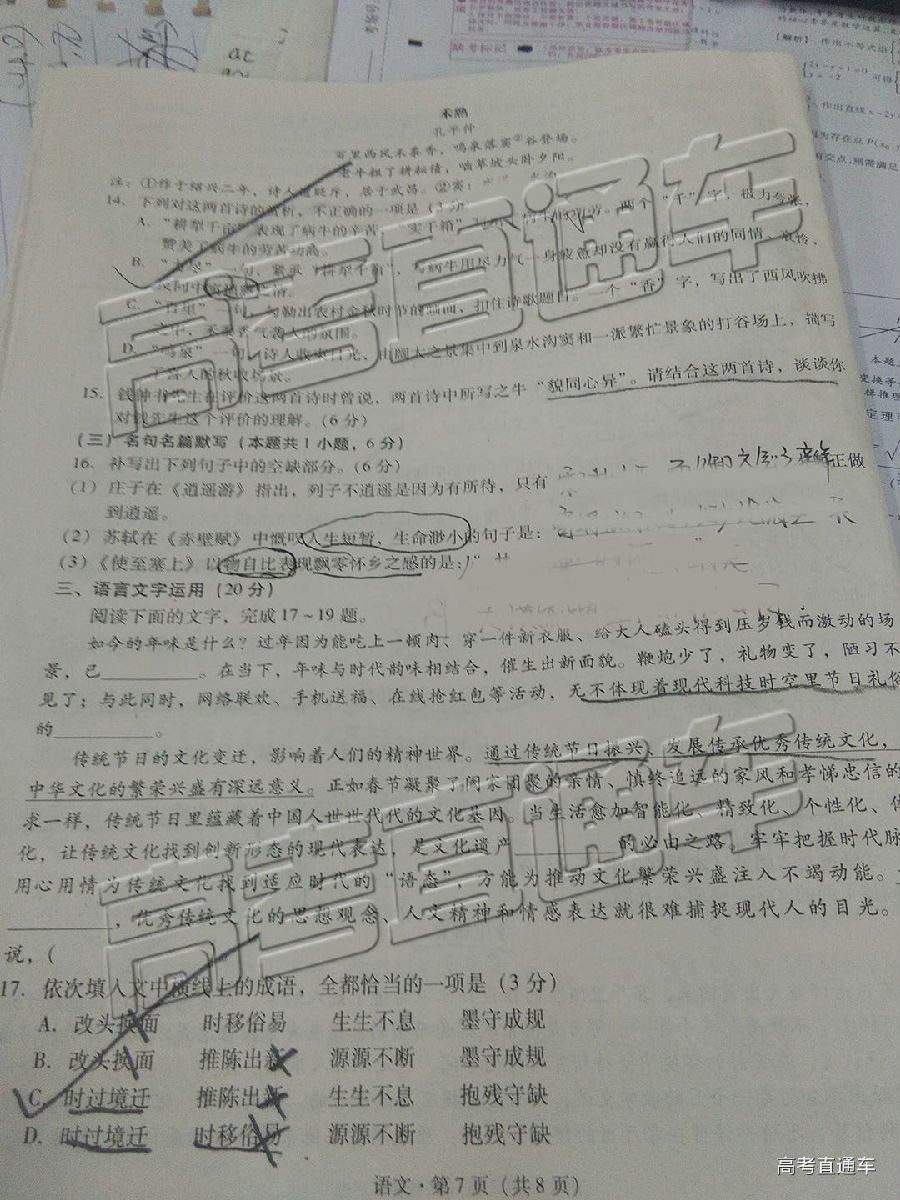 禾熟
孔平仲
百里西风禾黍香，鸣泉落窦②谷登场。
老牛粗了耕耘债，啮草坡头卧夕阳。
注：①作于绍兴二年，诗人 居于武昌。②窦：
14. 下列对这两首诗的赏析，不正确的一项是（3分）
A. “耕犁千亩”表现了病牛的辛苦，“实千箱” 两个“千”字，极力夸张，
赞美了病牛的劳苦功高。
B. 句，紧承“耕犁千亩”，写病牛用尽力气一身疲惫却没有赢得人们的同情、哀怜，
C. “百里”一句，勾勒出农村金秋时节的画面，扣住诗歌题目。一个“香”字，写出了西风吹拂
之中，禾黍香气袭人的氛围。
D. “鸣泉”一句，诗人收束目光，由阔大之景集中到泉水沟窦和一派繁忙景象的打谷场上，描写
15. 钱钟书先生在评价这两首诗时曾说，两首诗中所写之牛“貌同心异”。请结合这两首诗，谈谈你
对钱先生这个评价的理解。（6分）
（三）名句名篇默写（本题共1小题，6分）
16. 补写出下列句子中的空缺部分。（6分）
（1）庄子在《逍遥游》指出，列子不逍遥是因为有所待，只有
正做
到逍遥。
（2）苏轼在《赤壁赋》中慨叹人生短暂，生命渺小的句子是：
（3）《使至塞上》以物自比表现飘零怀乡之感的是：“
三、语言文字运用（20分）
阅读下面的文字，完成17～19题。
如今的年味是什么？过年因为能吃上一顿肉、穿一件新衣服、给大人磕头得到压岁钱而激动的场
景，已________。在当下，年味与时代韵味相结合，催生出新面貌。鞭炮少了，礼物变了，陋习不
见了；与此同时，网络联欢、手机送福、在线抢红包等活动，无不体现着现代科技时空里节日礼俗
的________。
传统节日的文化变迁，影响着人们的精神世界。通过传统节日振兴、发展传承优秀传统文化，
中华文化的繁荣兴盛有深远意义。正如春节凝聚了阖家团聚的亲情、慎终追远的家风和孝悌忠信的
求一样，传统节日里蕴藏着中国人世世代代的文化基因。当生活愈加智能化、精致化、个性化、
化，让传统文化找到创新形态的现代表达，是文化遗产________的必由之路，牢牢把握时代脉
用心用情为传统文化找到适应时代的“语态”，方能为推动文化繁荣兴盛注入不竭动能。
________，优秀传统文化的思想观念、人文精神和情感表达就很难捕捉现代人的目光。
说，（
17. 依次填入文中横线上的成语，全都恰当的一项是（3分）
A. 改头换面 时移俗易 生生不息 墨守成规
B. 改头换面 推陈出新 源源不断 墨守成规
C. 时过境迁 推陈出新 生生不息 抱残守缺
D. 时过境迁 时移俗易 源源不断 抱残守缺
语文·第7页（共8页）
高考直通车
高考直通车
高考直通车